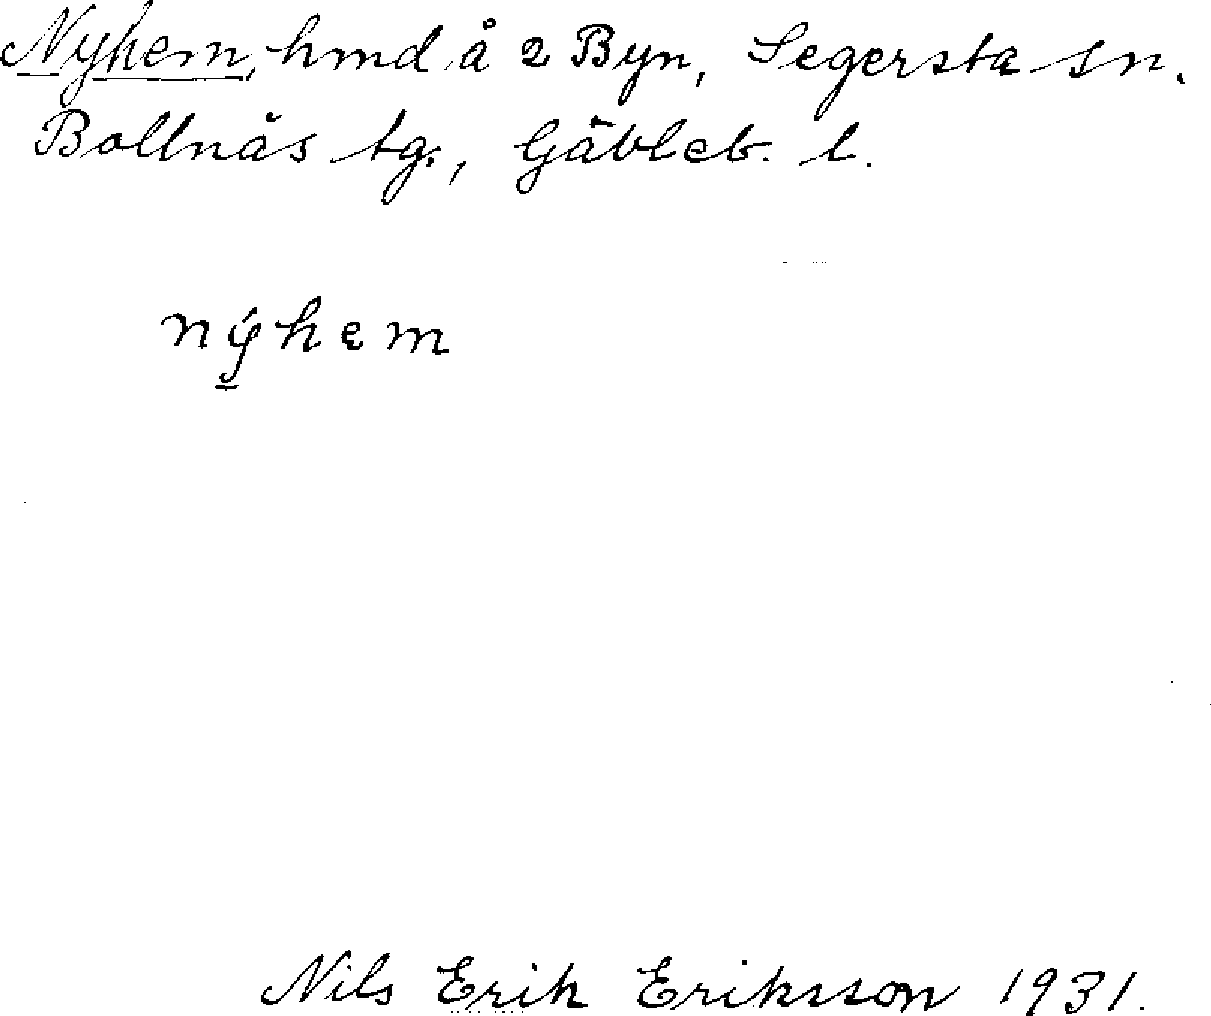 Nyhem, hmd å 2 Byn, Segersta sn.
Bollnäs tg., Gävleb. l.
nýhem
Nils Erik Eriksson 1931.